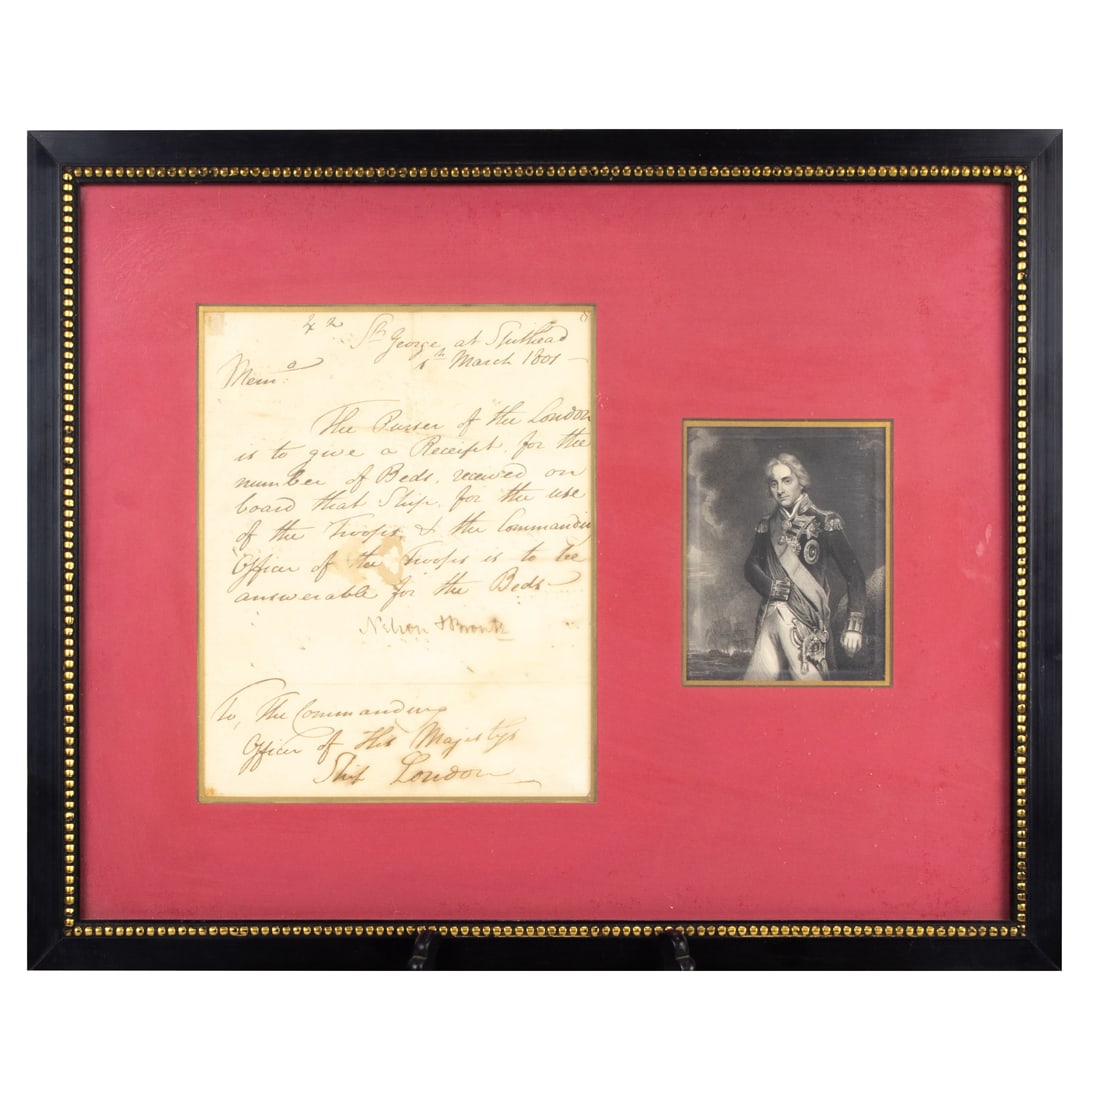 St. George, at Spithead
March 1801
Mem:a
The Purser of the London
is to give a Receipt, for the
number of Beds, received on
board that Ship, for the use
of the Troops, & the Commandin
Officer of the Troops is to be
answerable for the Beds
Nelson & Bronte
To, The Commanding
Officer of His Majestys
Ship London